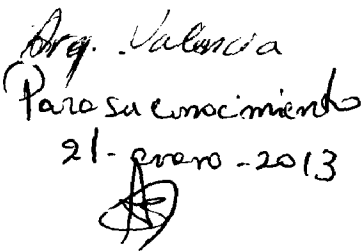 Arq. Valencia
Para su conocimiento
21-enero-2013